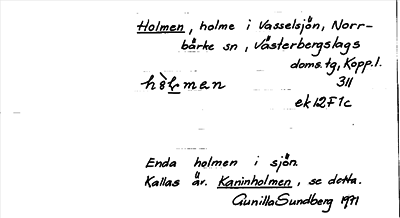 Holmen, holme i Vasselsjön, Norr-
bärke sn, Västerbergslags
doms.tg, Kopp.l.
hòlmen
311
ek 12F1c
Enda holmen i sjön.
Kallas äv. Kaninholmen, se detta.
Gunilla Sundberg 1971